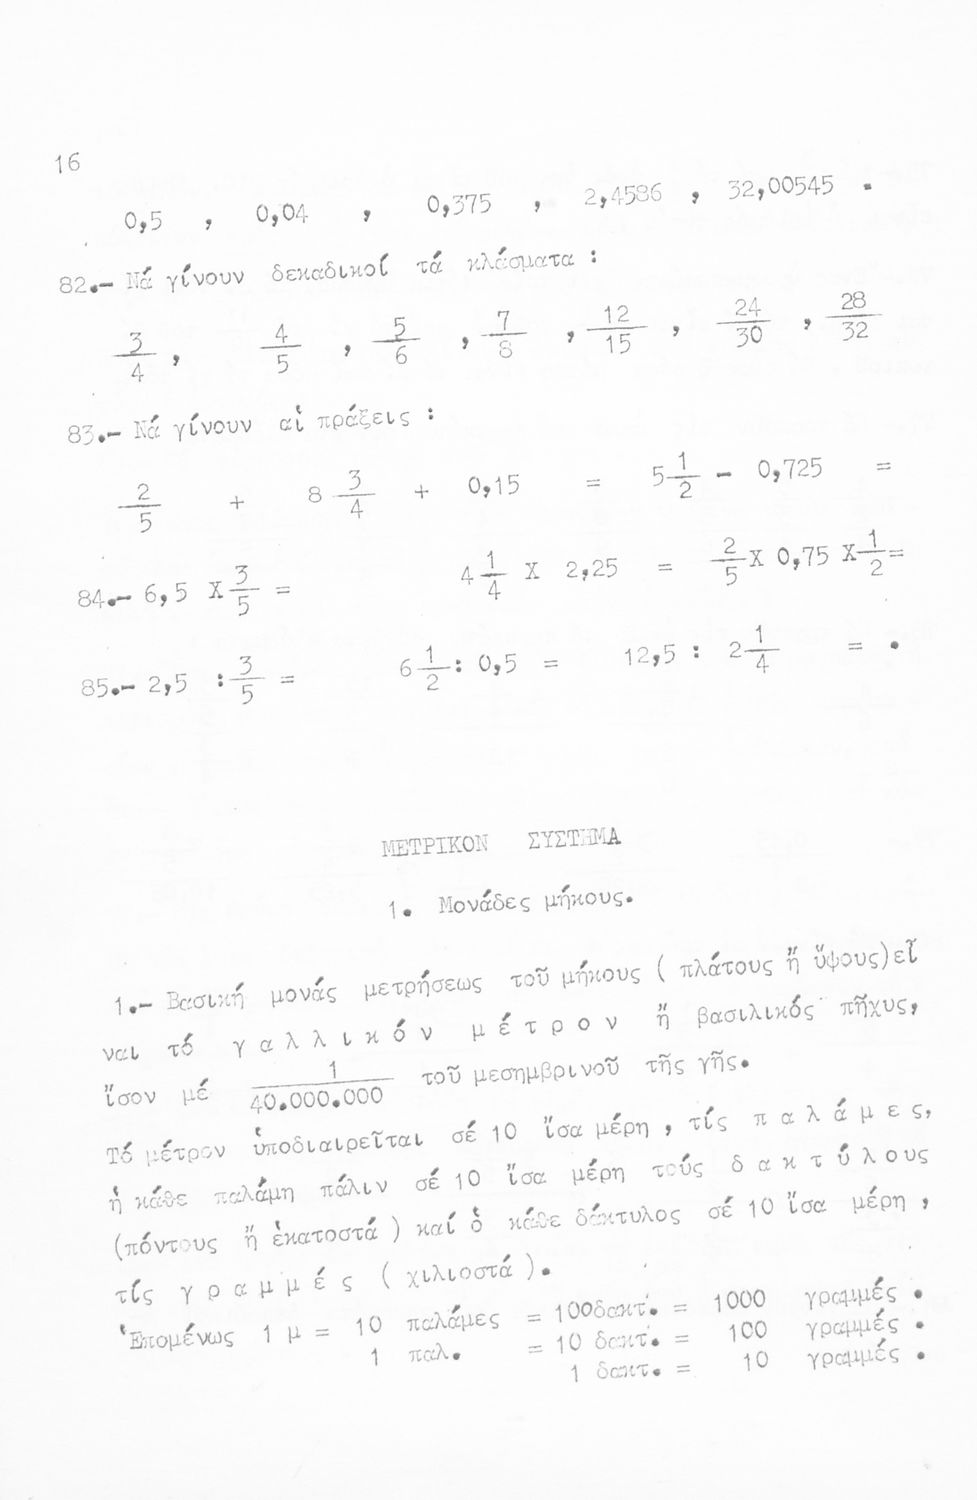 16
0,5 , 0,04 , 0,375 , 2,4586 , 32,00545 .
82.- Νά γίνουν δεκαδικοί τά κλάσματα :
3/4 , 4/5 , 5/6 , 7/8 , 12/15 , 24/30 , 28/32
83.- Νά γίνουν αἱ πράξεις :
2/5 + 8 3/4 + 0,15 = 5 1/2 - 0,725 =
84.- 6,5 Χ 3/5 = 4 1/4 Χ 2,25 = 2/5 Χ 0,75 Χ 1/2 =
85.- 2,5 : 3/5 = 6 1/2 : 0,5 = 12,5 : 2 1/4 = .
ΜΕΤΡΙΚΟΝ ΣΥΣΤΗΜΑ
1. Μονάδες μήκους.
1.- Βασική μονάς μετρήσεως τοῦ μήκους ( πλάτους ἤ ὕψους)εἶ
ναι τό γ α λ λ ι κ ό ν μ έ τ ρ ο ν ἤ βασιλικός πῆχυς,
ἴσον μέ 1/40.000.000 τοῦ μεσημβρινοῦ τῆς γῆς.
Τό μέτρον ὑποδιαιρεῖται σέ 10 ἴσα μέρη , τίς π α λ ά μ ε ς,
ἡ κάθε παλάμη πάλιν σέ 10 ἴσα μέρη τούς δ α κ τ ύ λ ους
(πόντους ἤ ἑκατοστά ) καί ὁ κάθε δάκτυλος σέ 10 ἴσα μέρη ,
τίς γ ρ α μ μ έ ς ( χιλιοστά ).
Ἑπομένως 1 μ = 10 παλάμες = 100δακτ. = 1000 γραμμές .
1 παλ. = 10 δακτ. = 100 γραμμές .
1 δακτ. = 10 γραμμές .